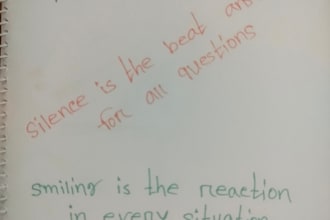 silence is the beat an
for all questions
smiling is the reaction
in every situation